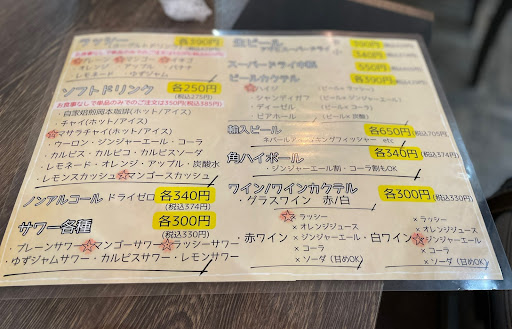 ラッシー 各390円
お食事なしで単品のみでのご注文は
☆プレーン ☆マンゴー ☆バナナ
・オレンジ ・アップル ・バナナ
・レモネード ・ゆずジャム
ソフトドリンク 各250円
(税込275円)
お食事なしで単品のみでのご注文は350円(税込385円)
・自家焙煎岡本珈琲(ホット/アイス)
・チャイ(ホット/アイス)
☆マサラチャイ(ホット/アイス)
・ウーロン・ジンジャーエール・コーラ
・カルピス・カルピコ・カルピスソーダ
・レモネード・オレンジ・アップル・炭酸水
・レモンスカッシュ☆マンゴースカッシュ
ノンアルコール ドライゼロ 各340円
(税込374円)
サワー各種 各300円
(税込330円)
・プレーンサワー☆マンゴーサワー☆ラッシーサワー
・ゆずジャムサワー・カルピスサワー・レモンサワー
生ビール
アサヒスーパードライ
340円
スーパードライ中瓶 550円
ビールカクテル 各390円
☆ハイジ (ビール×ラッシー)
・シャンディガフ (ビール×ジンジャーエール)
・ディーゼル (ビール×コーラ)
・ビアホール (ビール×炭酸)
輸入ビール 各650円 (税込705円)
ネパールアイス・キングフィッシャー etc
角ハイボール 各340円
・ジンジャーエール割・コーラ割もOK (税込374円)
ワイン/ワインカクテル
・グラスワイン 赤/白 各300円 (税込330円)
赤ワイン
☆×ラッシー
×オレンジジュース
×ジンジャーエール
×コーラ
×ソーダ (甘めOK)
・白ワイン
×ラッシー
×オレンジジュース
☆×ジンジャーエール
×コーラ
×ソーダ (甘めOK)